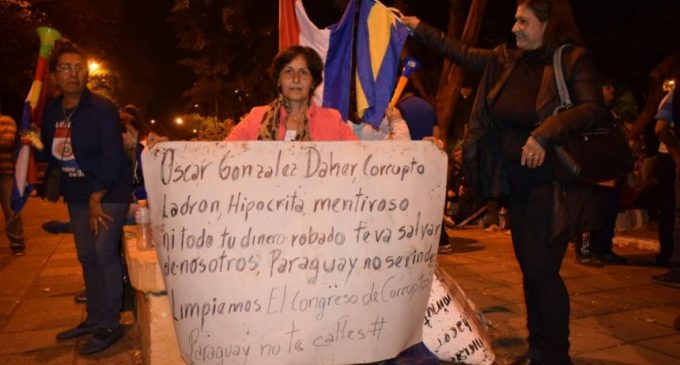 Oscar Gonzalez Daher, Corrupto
Ladron, Hipocrita, mentiroso
ni todo tu dinero robado te va salvar
de nosotros. Paraguay no se rinde
Limpiemos El Congreso de Corruptos
Paraguay no te calles #